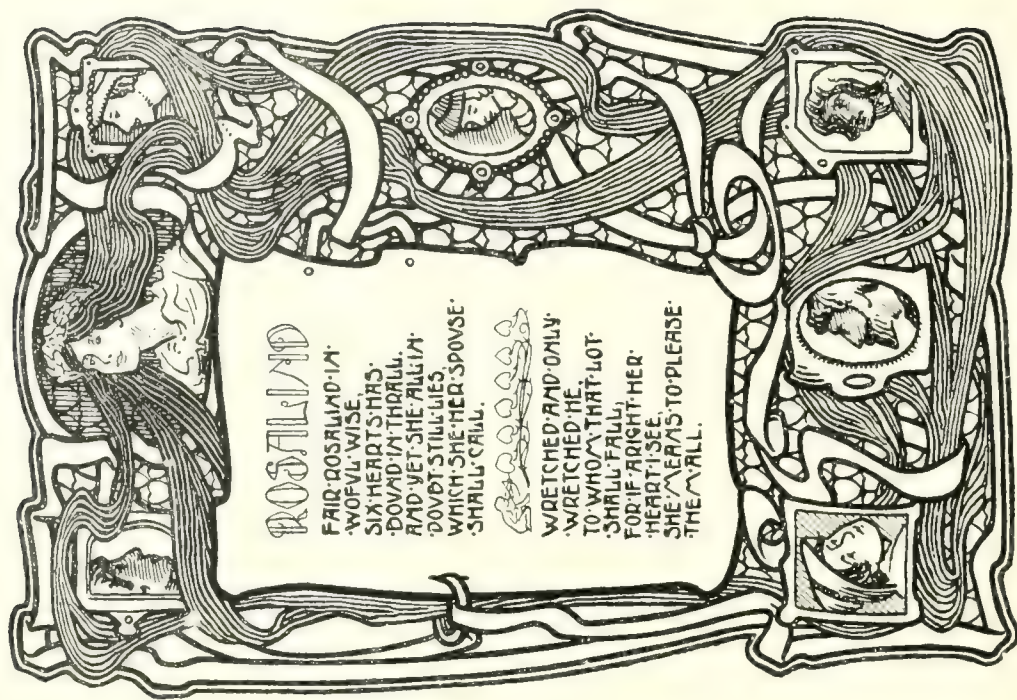 ROSALIND
FAIR·ROSALIND·IN·
·WOFVL·WISE,
SIX·HEARTS·HAS·
·BOVND·IN·THRALL.
AND·YET·SHE·ALL·IN·
·DOVBT·STILL·LIES,
WHICH·SHE·HER·SPOVSE·
·SHALL·CALL.
WRETCHED·AND·ONLY·
·WRETCHED·HE,
TO·WHOM·THAT·LOT·
·SHALL·FALL,
FOR·IF·ARIGHT·HER·
·HEART·I·SEE,
SHE·MEANS·TO·PLEASE·
·THEM·ALL.